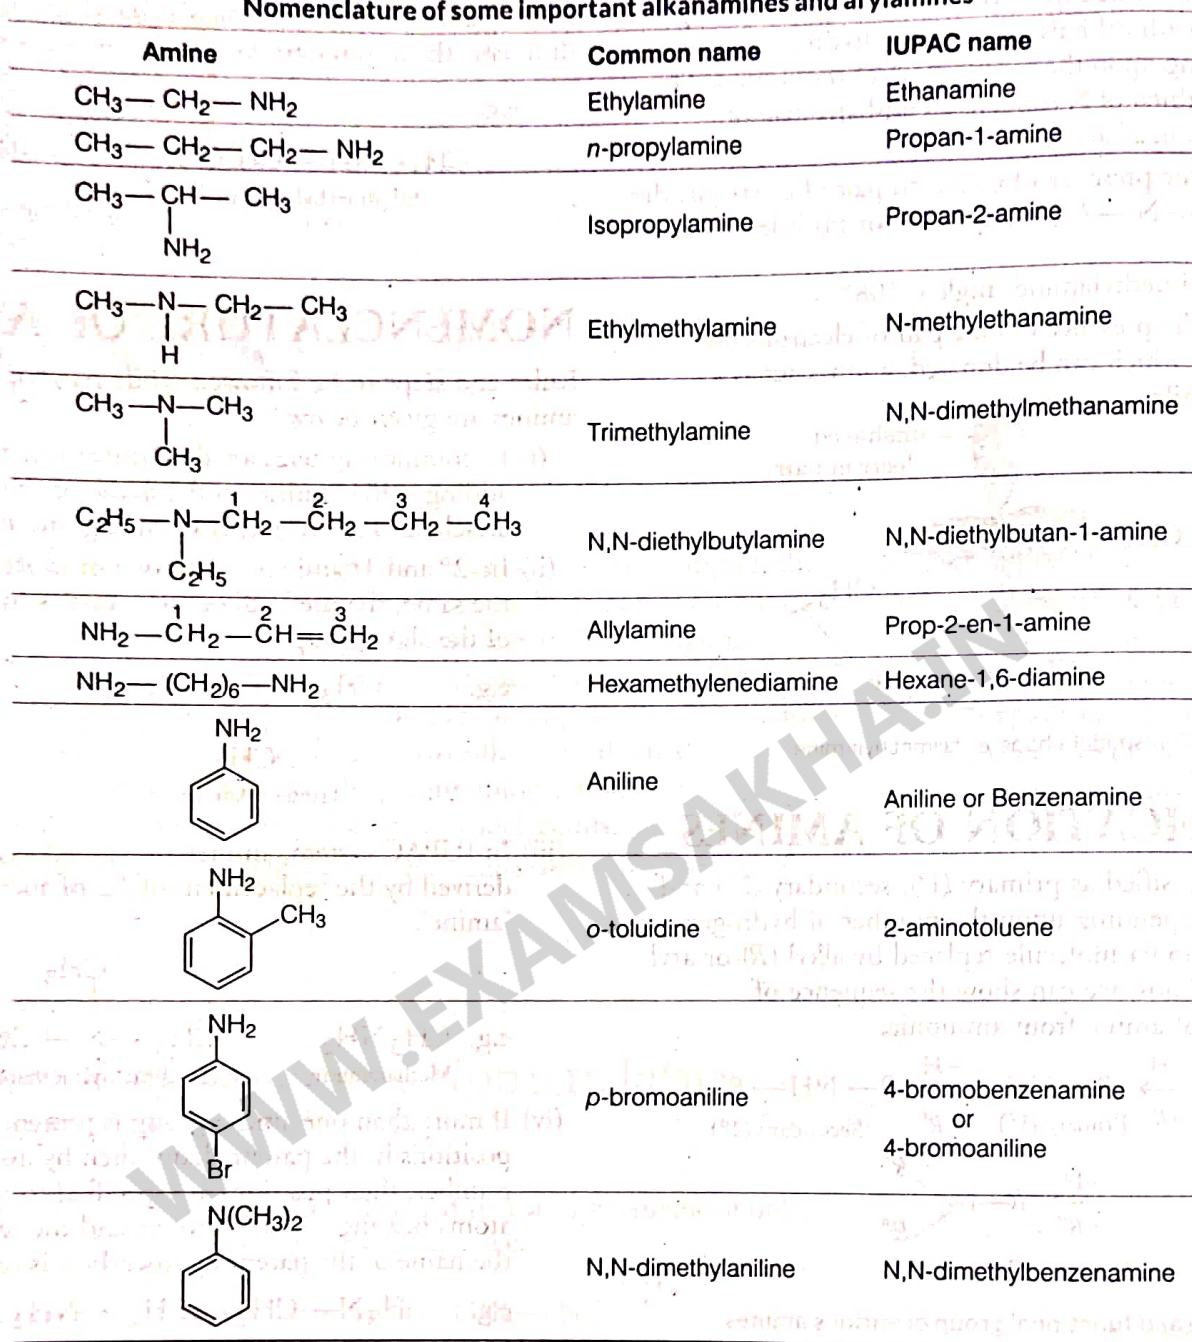 Nomenclature of some important alkanamines and arylamines
Amine Common name IUPAC name
CH3— CH2— NH2 Ethylamine Ethanamine
CH3— CH2— CH2— NH2 n-propylamine Propan-1-amine
CH3— CH— CH3
NH2
Isopropylamine Propan-2-amine
CH3—N— CH2— CH3
H
Ethylmethylamine N-methylethanamine
CH3—N—CH3
CH3
Trimethylamine N,N-dimethylmethanamine
1 2 3 4
C2H5—N—CH2—CH2—CH2—CH3
C2H5
N,N-diethylbutylamine N,N-diethylbutan-1-amine
1 2 3
NH2—CH2—CH=CH2 Allylamine Prop-2-en-1-amine
NH2— (CH2)6—NH2 Hexamethylenediamine Hexane-1,6-diamine
NH2
Aniline Aniline or Benzenamine
NH2
CH3
o-toluidine 2-aminotoluene
NH2
Br
p-bromoaniline 4-bromobenzenamine
or
4-bromoaniline
N(CH3)2
N,N-dimethylaniline N,N-dimethylbenzenamine
WWW.EXAMSAKHA.IN